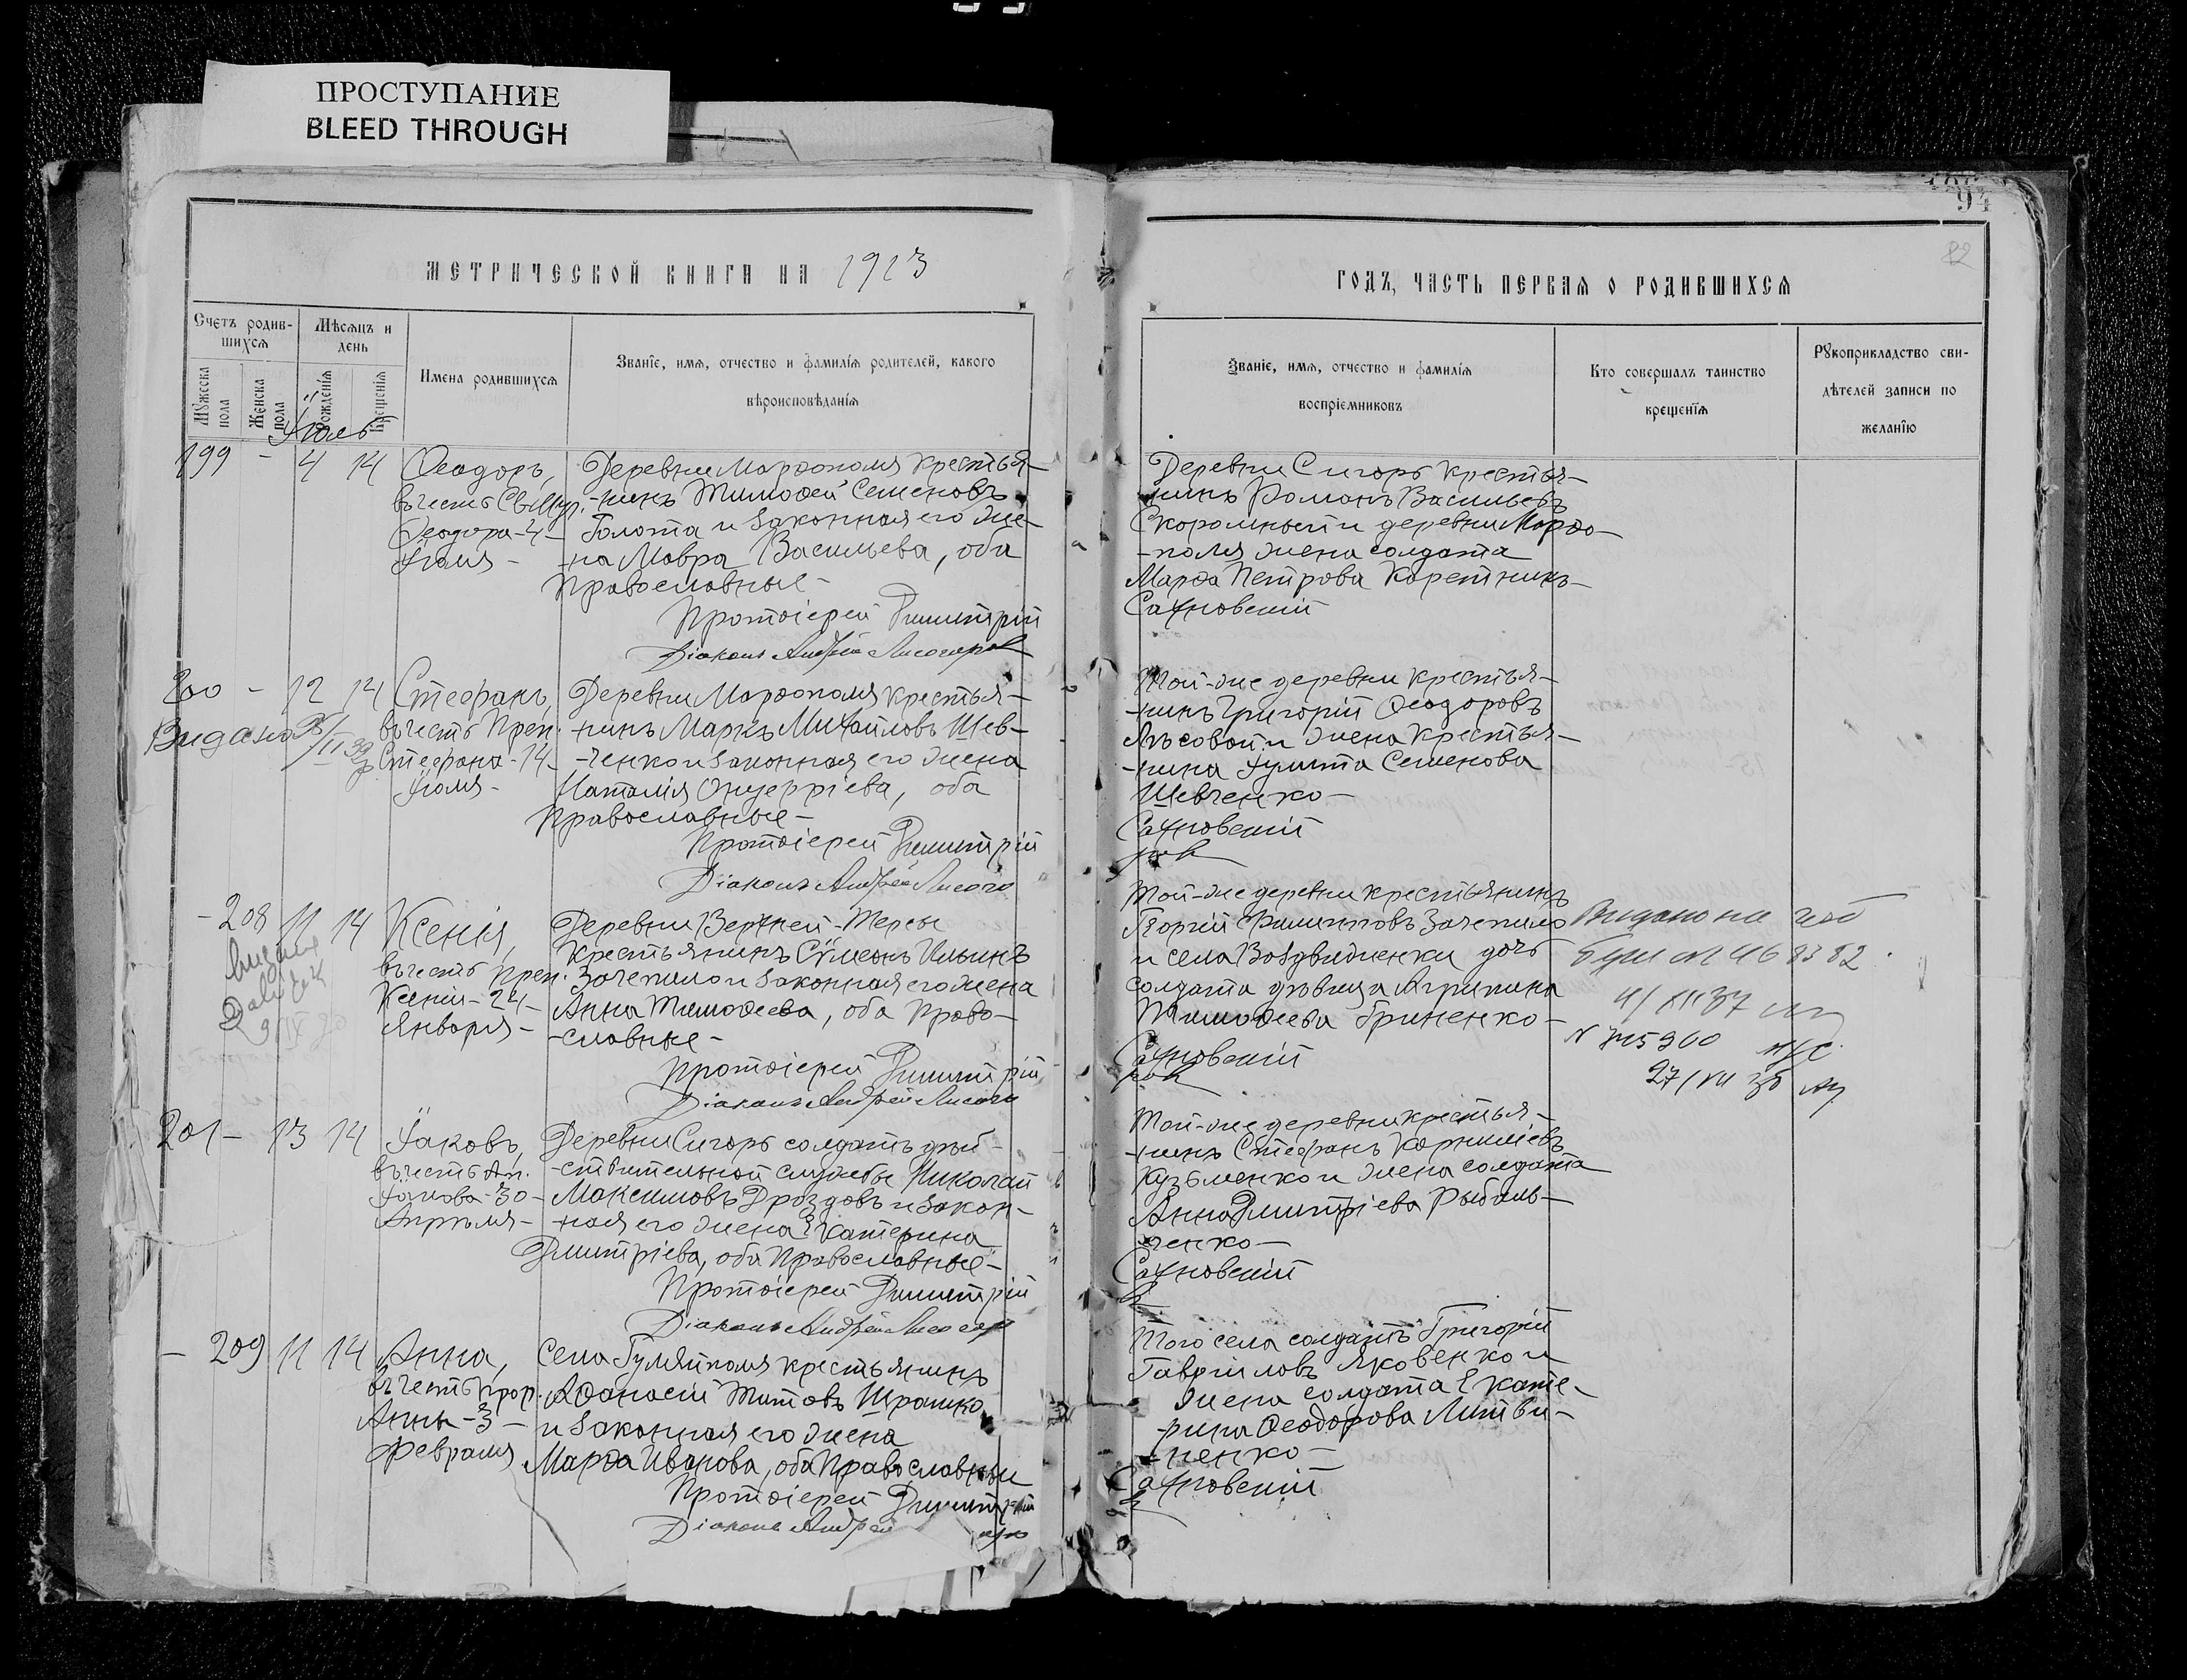 ПРОСТУПАНИЕ
BLEED THROUGH
94
МЕТРИЧЕСКОЙ КНИГИ НА 1913
ГОДЪ, ЧАСТЬ ПЕРВАЯ О РОДИВШИХСЯ
Счетъ родив-
шихся
Мѣсяцъ и
день
Мужеска пола
Женска пола
Рожденія
Крещенія
Имена родившихся
Званіе, имя, отчество и фамилія родителей, какого
вѣроисповѣданія
Званіе, имя, отчество и фамилія
воспріемниковъ
Кто совершалъ таинство
крещенія
Рукоприкладство сви-
дѣтелей записи по
желанію
Іюль
199 - 4 14
Ѳеодоръ,
въ честь Св. Муч.
Ѳеодора - 4 -
Іюля -
Деревни Марѳополя крестья-
-нинъ Тимоѳей Семеновъ
Голота и законная его же-
на Мавра Васильева, оба
Православные -
Протоіерей Димитрій
Діаконъ Андрей
Деревни Сигоръ крестья-
нинъ Романъ Васильевъ
Скоромный и деревни Марѳо-
-поля жена солдата
Марѳа Петрова Каретникъ-
Сахновскій
200 - 12 14
Стефанъ,
въ честь Преп.
Стефана - 14 -
Іюля -
Видано
Деревни Марѳополя крестья-
-нинъ Маркъ Михайловъ Шев-
-ченко и законная его жена
Наталія Онуфріева, оба
Православные -
Протоіерей Димитрій
Діаконъ Андрей
Той-же деревни крестья-
-нинъ Григорій Ѳеодоровъ
Лѣсовой и жена крестья-
-нина Іулита Семенова
Шевченко -
Сахновскій
- 208 11 14
Ксенія,
въ честь Преп.
Ксеніи - 24 -
Января -
Деревни Верхней-Терсы
крестьянинъ Сѵмеонъ Ильинъ
Зачепило и законная его жена
Анна Тимоѳеева, оба Право-
-славные -
Протоіерей Димитрій
Діаконъ Андрей
Той-же деревни крестьянинъ
Георгій Филипповъ Зачепило
и села Воздвиженки дочь
солдата дѣвица Агрипина
Тимоѳеева Гриненко -
Сахновскій
Видано на
201 - 13 14
Іаковъ,
въ честь Ап.
Іакова - 30 -
Апрѣля -
Деревни Сигоръ солдатъ дѣй-
-ствительной службы Николай
Максимовъ Дроздовъ и закон-
-ная его жена Екатерина
Дмитріева, оба Православные -
Протоіерей Димитрій
Діаконъ Андрей
Той-же деревни крестья-
-нинъ Стефанъ Корниліевъ
Кузьменко и жена солдата
Анна Дмитріева Рыбаль-
-ченко -
Сахновскій
- 209 11 14
Анна,
въ честь Прор.
Анны - 3 -
Февраля
Села Гуляйполя крестьянинъ
Аѳанасій Титовъ Шрамко
и законная его жена
Марѳа Иванова, оба Православные
Протоіерей Димитрій
Діаконъ Андрей
Того села солдатъ Григорій
Гавріиловъ Яковенко и
жена солдата Екате-
-рина Ѳеодорова Литви-
-ненко -
Сахновскій